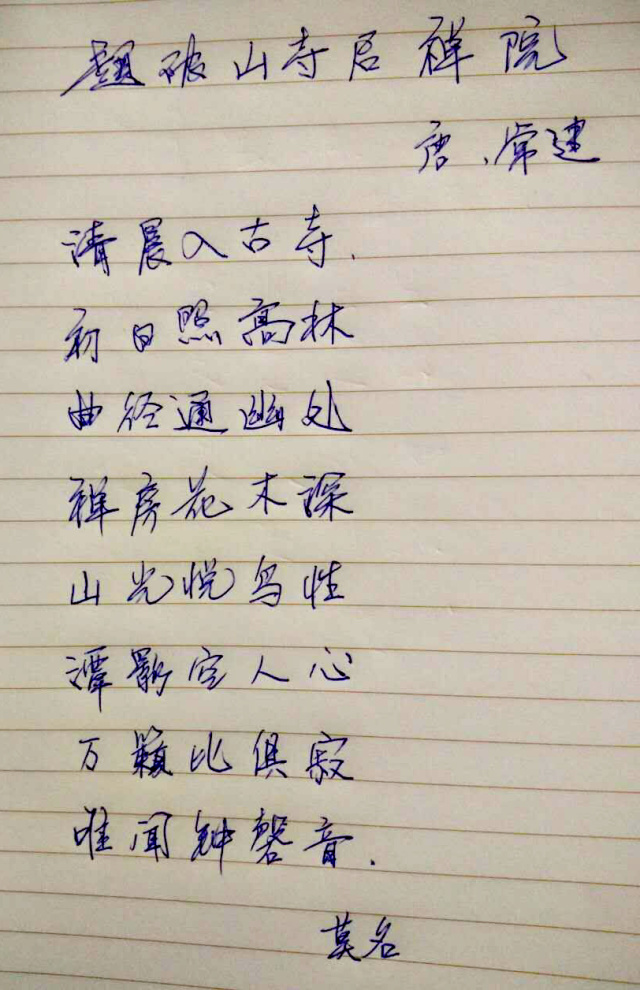 题破山寺后禅院
唐、常建
清晨入古寺.
初日照高林
曲径通幽处
禅房花木深
山光悦鸟性
潭影空人心
万籁比俱寂
唯闻钟磬音.
莫名